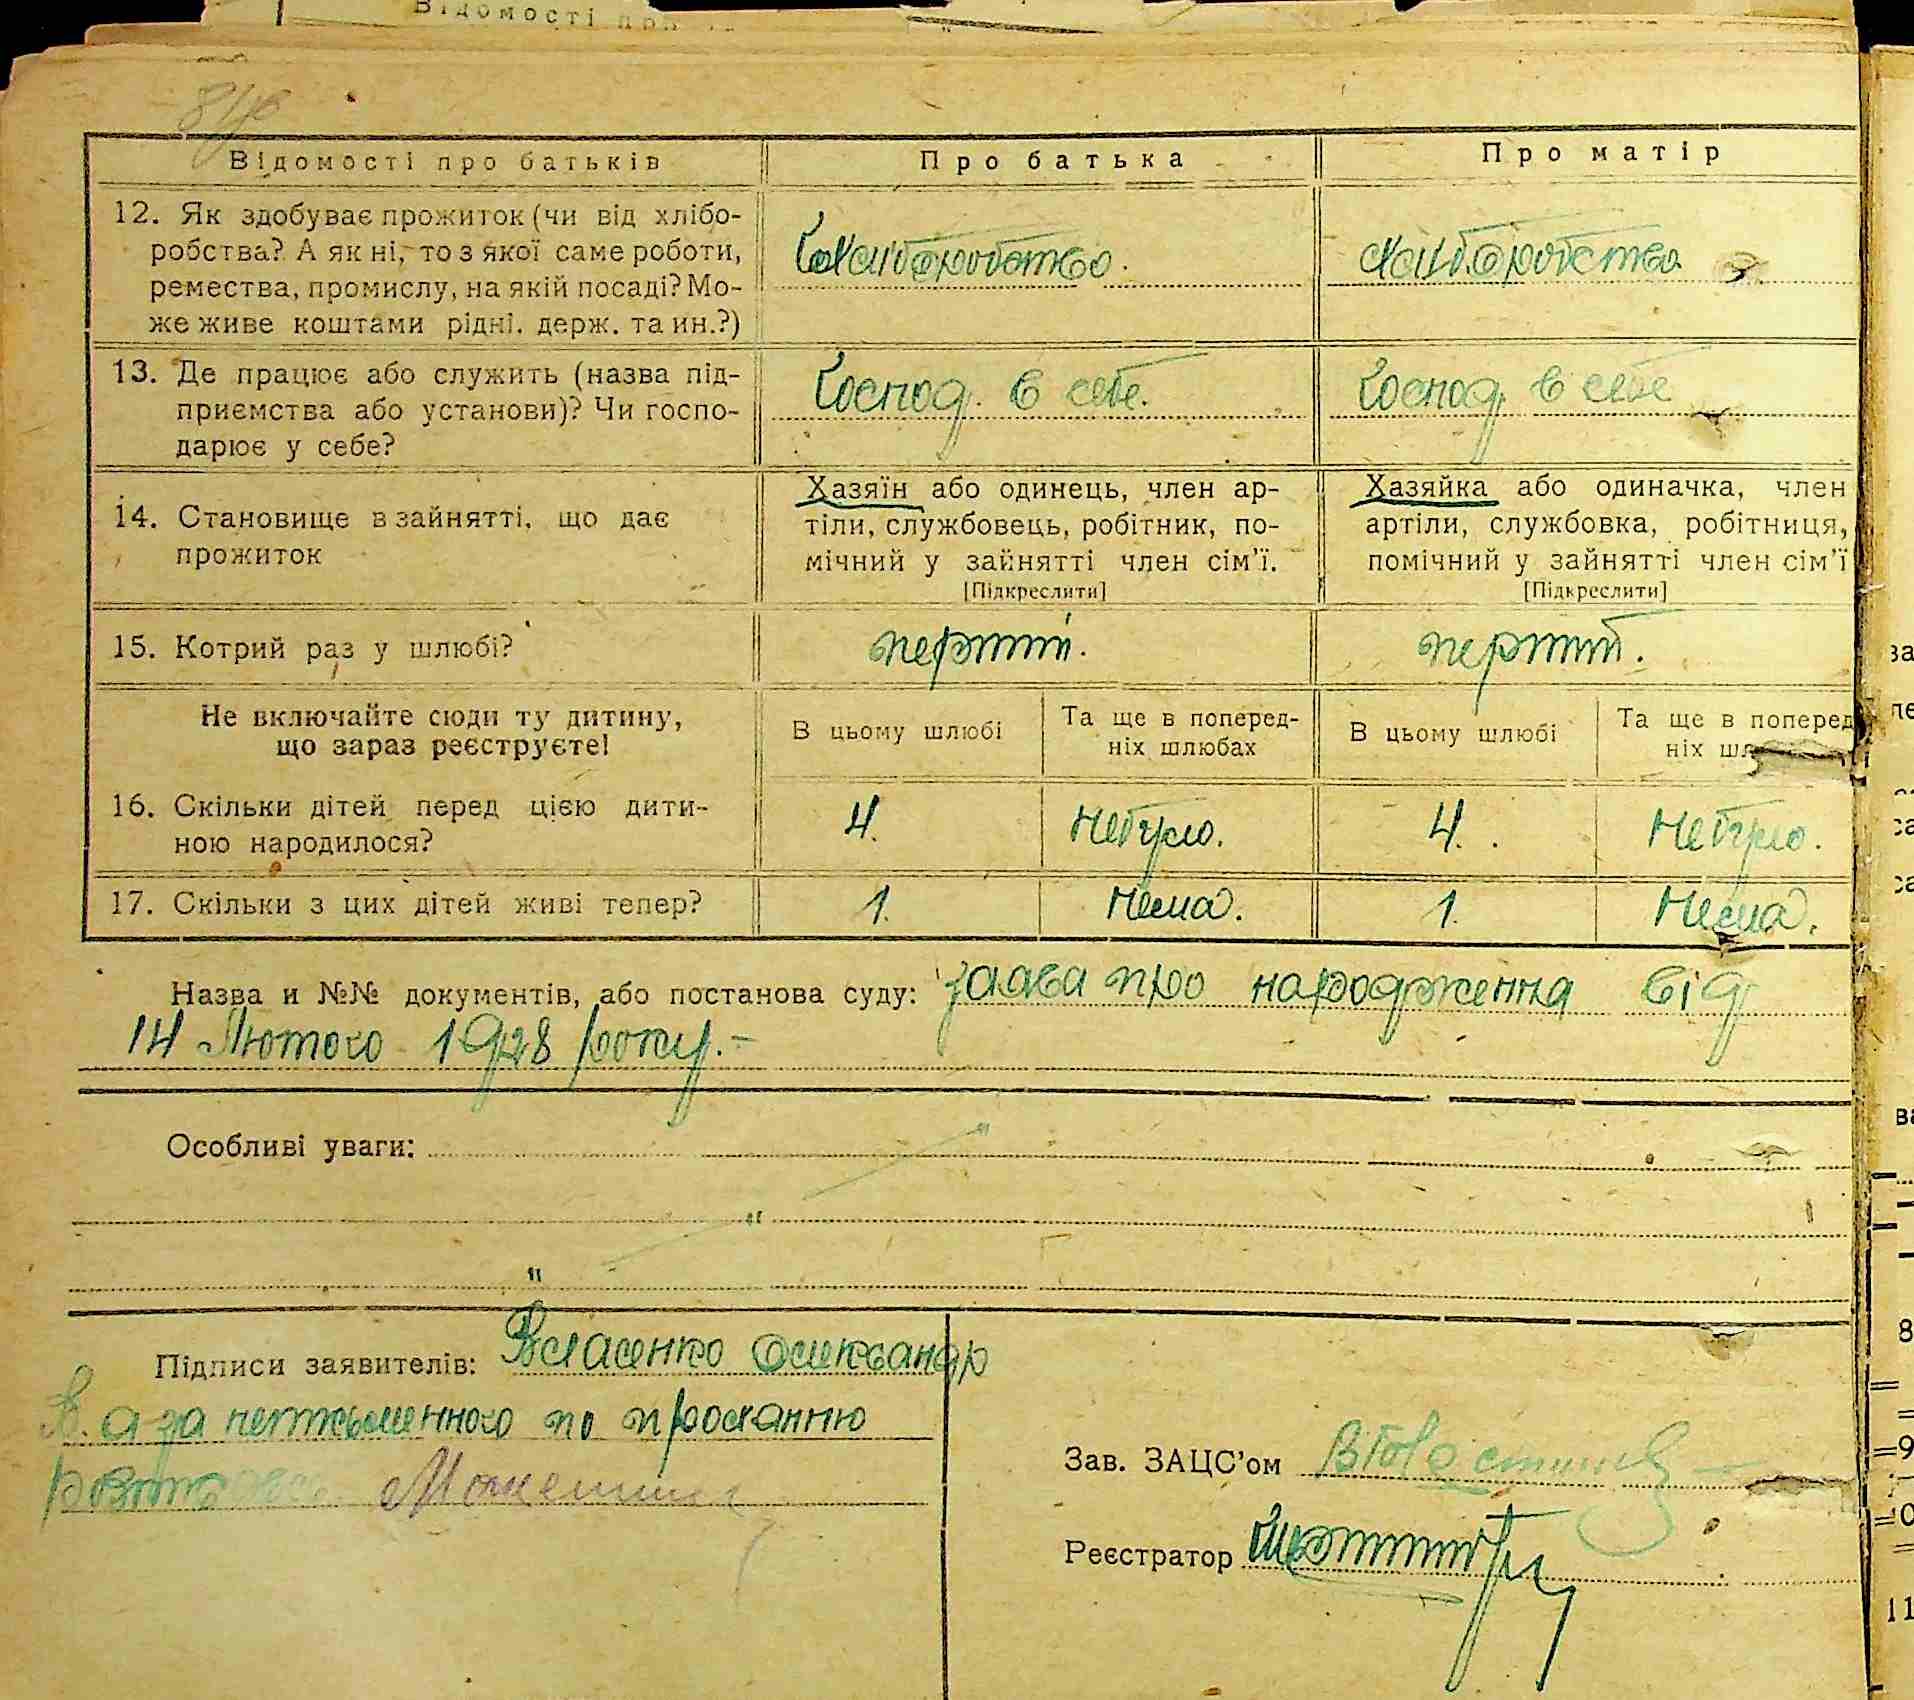 Відомості про батьків
Про батька
Про матір
12. Як здобуває прожиток (чи від хлібо-
робства? А як ні, то з якої саме роботи,
ремества, промислу, на якій посаді? Мо-
же живе коштами рідні. держ. та ин.?)
Хліборобство.
Хліборобство
13. Де працює або служить (назва під-
приємства або установи)? Чи госпо-
дарює у себе?
Господ. в себе.
Господ в себе
14. Становище в зайнятті, що дає
прожиток
Хазяїн або одинець, член ар-
тіли, службовець, робітник, по-
мічний у зайнятті член сім'ї.
[Підкреслити]
Хазяйка або одиначка, член
артіли, службовка, робітниця,
помічний у зайнятті член сім'ї
[Підкреслити]
15. Котрий раз у шлюбі?
перший.
перший.
Не включайте сюди ту дитину,
що зараз реєструєте!
В цьому шлюбі
Та ще в поперед-
ніх шлюбах
В цьому шлюбі
Та ще в поперед
ніх
16. Скільки дітей перед цією дити-
ною народилося?
4.
Небуло.
4.
Небуло.
17. Скільки з цих дітей живі тепер?
1.
Нема.
1.
Нема.
Назва и №№ документів, або постанова суду: заява про народження від
14 Лютого 1928 року.-
Особливі уваги:
Підписи заявителів: Власенко Олександр
а за неписьменного по проханню
Зав. ЗАЦС'ом
Реєстратор